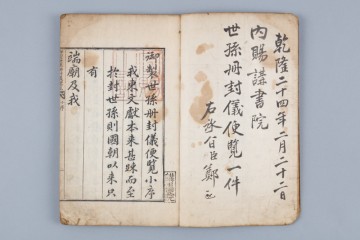 乾隆二十四年二月二十二日
內賜講書院
世孫冊封儀便覽一件
右承旨臣鄭
御製世孫冊封儀便覽小序
我東文獻本來甚踈而至
於封世孫則國朝以來只
有
端廟及我